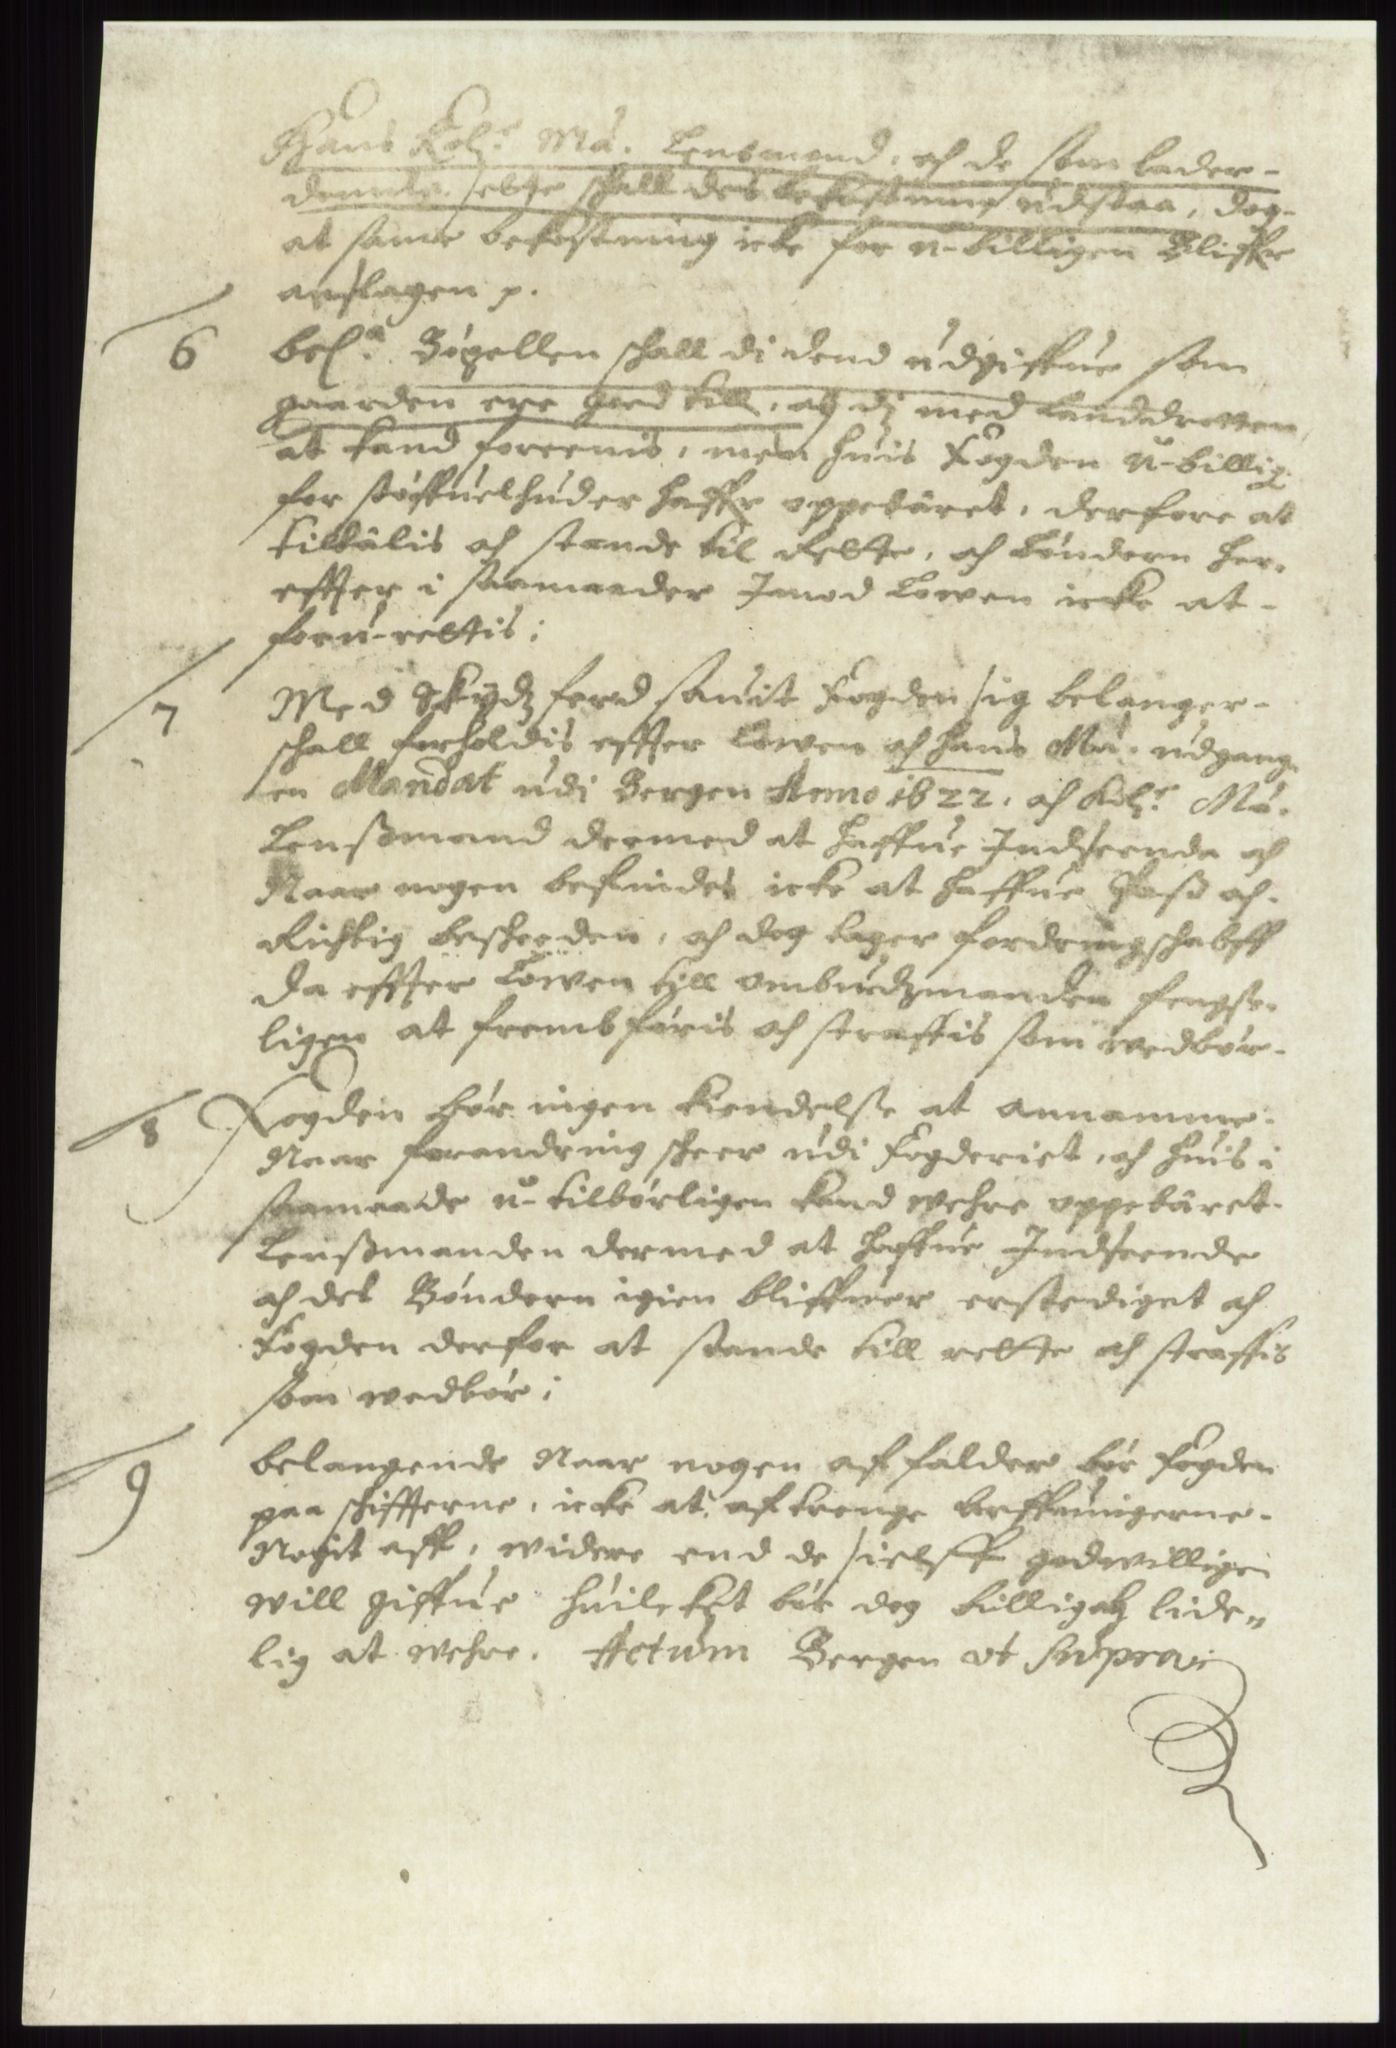 Hans Kolg: Ma: Lensmand, och de som lader-
dennle. selge schall des bekostning udstaa, dog-
at same bekostning icke for u-billigen Bliffr
anslagen p.
6 bel:a Böxellen schall di dend udgiffue som
gaarden ere goed till, och dj med Landdrotten
at kand foreenis, men huis Fogden u-billig
for støffuelhuder haffr oppebaret, derfore at
tiltalis och stande til rette, och bønderne her-
effter i saamaader Imod Lowen icke at-
foru-rettis;
7 Med Skydtz ferd sauit Fogden sig belanger-
schall forholdis effter lowen och hans Ma: udgang-
en Mandat udi Bergen Anno 1622, och Kolg: Ma:
Lenssmand dermed at haffue Indseende och
Naar nogen befindes icke at haffue Pass och-
Richtig beskeeden, och dog tager fordringschabff
da effter Lowen till ombudzmanden fengse-
ligen at frembføris och straffis som wedbør-
8 Fogden bør ingen kiendelsse at annamme-
Naar forandring scheer udi Fogderiet, och huis i
saamaade u-tilbørligen kand wehre oppebaret-
Lenssmanden dermed at haffue Indseende
och det Bønderne igien bliffuer erstediget och
Fogden derfor at stande till rette och straffis
som wedbør;
9 belangende Naar nogen affalder bør Fogden
paa schiffterne, icke at aftrenge arffuingerne-
Nogit aff, widere end de sielff godwilligen
will giffue huilcket bør dog billigen lide-
lig at wehre. Actum Bergen ut supra;